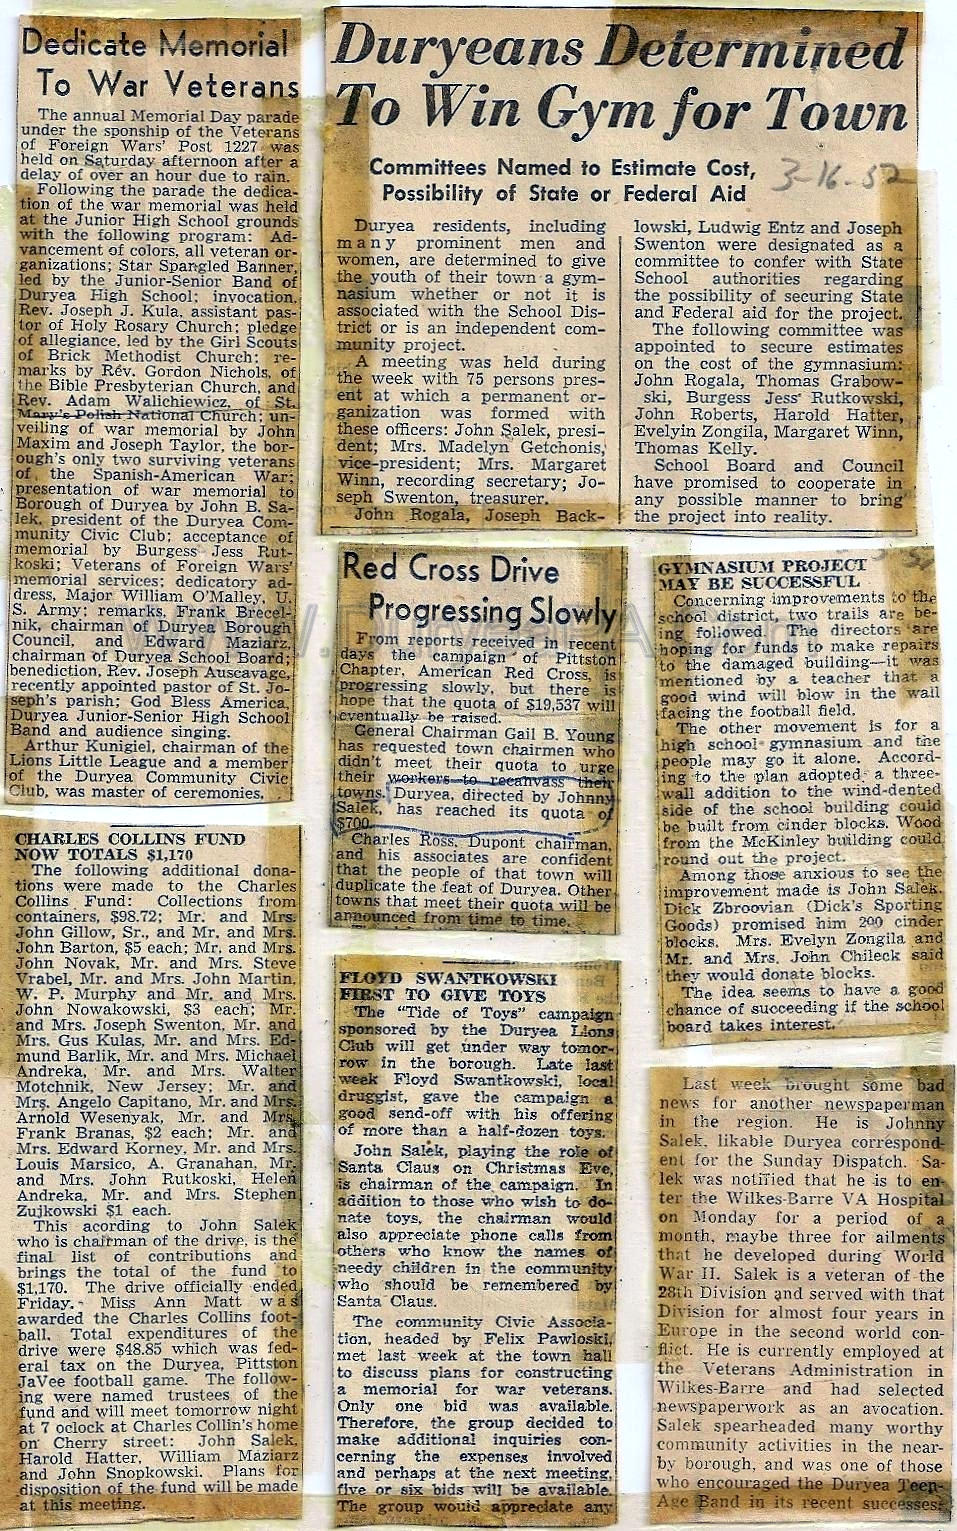 Dedicate Memorial
To War Veterans
The annual Memorial Day parade
under the sponship of the Veterans
of Foreign Wars' Post 1227 was
held on Saturday afternoon after a
delay of over an hour due to rain.
Following the parade the dedica-
tion of the war memorial was held
at the Junior High School grounds
with the following program: Ad-
vancement of colors, all veteran or-
ganizations; Star Spangled Banner,
led by the Junior-Senior Band of
Duryea High School; invocation,
Rev. Joseph J. Kula, assistant pas-
tor of Holy Rosary Church; pledge
of allegiance, led by the Girl Scouts
of Brick Methodist Church; re-
marks by Rev. Gordon Nichols, of
the Bible Presbyterian Church, and
Rev. Adam Walichiewicz, of St.
Mary's Polish National Church; un-
veiling of war memorial by John
Maxim and Joseph Taylor, the bor-
ough's only two surviving veterans
of the Spanish-American War;
presentation of war memorial to
Borough of Duryea by John B. Sa-
lek, president of the Duryea Com-
munity Civic Club; acceptance of
memorial by Burgess Jess Rut-
koski; Veterans of Foreign Wars'
memorial services; dedicatory ad-
dress, Major William O'Malley, U.
S. Army; remarks, Frank Brecel-
nik, chairman of Duryea Borough
Council, and Edward Maziarz,
chairman of Duryea School Board;
benediction, Rev. Joseph Auscavage,
recently appointed pastor of St. Jo-
seph's parish; God Bless America,
Duryea Junior-Senior High School
Band and audience singing.
Arthur Kunigiel, chairman of the
Lions Little League and a member
of the Duryea Community Civic
Club, was master of ceremonies.
CHARLES COLLINS FUND
NOW TOTALS $1,170
The following additional dona-
tions were made to the Charles
Collins Fund: Collections from
containers, $98.72; Mr. and Mrs.
John Gillow, Sr., and Mr. and Mrs.
John Barton, $5 each; Mr. and Mrs.
John Novak, Mr. and Mrs. Steve
Vrabel, Mr. and Mrs. John Martin,
W. P. Murphy and Mr. and Mrs.
John Nowakowski, $3 each; Mr.
and Mrs. Joseph Swenton, Mr. and
Mrs. Gus Kulas, Mr. and Mrs. Ed-
mund Barlik, Mr. and Mrs. Michael
Andreka, Mr. and Mrs. Walter
Motchnik, New Jersey; Mr. and
Mrs. Angelo Capitano, Mr. and Mrs.
Arnold Wesenyak, Mr. and Mrs.
Frank Branas, $2 each; Mr. and
Mrs. Edward Korney, Mr. and Mrs.
Louis Marsico, A. Granahan, Mr.
and Mrs. John Rutkoski, Helen
Andreka, Mr. and Mrs. Stephen
Zujkowski $1 each.
This acording to John Salek
who is chairman of the drive, is the
final list of contributions and
brings the total of the fund to
$1,170. The drive officially ended
Friday. Miss Ann Matt was
awarded the Charles Collins foot-
ball. Total expenditures of the
drive were $48.85 which was fed-
eral tax on the Duryea, Pittston
JaVee football game. The follow-
ing were named trustees of the
fund and will meet tomorrow night
at 7 oclock at Charles Collin's home
on Cherry street: John Salek,
Harold Hatter, William Maziarz
and John Snopkowski. Plans for
disposition of the fund will be made
at this meeting.
Duryeans Determined
To Win Gym for Town
Committees Named to Estimate Cost,
Possibility of State or Federal Aid
3-16-52
Duryea residents, including
many prominent men and
women, are determined to give
the youth of their town a gym-
nasium whether or not it is
associated with the School Dis-
trict or is an independent com-
munity project.
A meeting was held during
the week with 75 persons pres-
ent at which a permanent or-
ganization was formed with
these officers: John Salek, presi-
dent; Mrs. Madelyn Getchonis,
vice-president; Mrs. Margaret
Winn, recording secretary; Jo-
seph Swenton, treasurer.
John Rogala, Joseph Back-
lowski, Ludwig Entz and Joseph
Swenton were designated as a
committee to confer with State
School authorities regarding
the possibility of securing State
and Federal aid for the project.
The following committee was
appointed to secure estimates
on the cost of the gymnasium:
John Rogala, Thomas Grabow-
ski, Burgess Jess Rutkowski,
John Roberts, Harold Hatter,
Evelyin Zongila, Margaret Winn,
Thomas Kelly.
School Board and Council
have promised to cooperate in
any possible manner to bring
the project into reality.
Red Cross Drive
Progressing Slowly
From reports received in recent
days the campaign of Pittston
Chapter, American Red Cross, is
progressing slowly, but there is
hope that the quota of $19,537 will
eventually be raised.
General Chairman Gail B. Young
has requested town chairmen who
didn't meet their quota to urge
their workers to recanvass their
towns. Duryea, directed by Johnny
Salek, has reached its quota of
$700.
Charles Ross, Dupont chairman,
and his associates are confident
that the people of that town will
duplicate the feat of Duryea. Other
towns that meet their quota will be
announced from time to time.
FLOYD SWANTKOWSKI
FIRST TO GIVE TOYS
The "Tide of Toys" campaign
sponsored by the Duryea Lions
Club will get under way tomor-
row in the borough. Late last
week Floyd Swantkowski, local
druggist, gave the campaign a
good send-off with his offering
of more than a half-dozen toys.
John Salek, playing the role of
Santa Claus on Christmas Eve,
is chairman of the campaign. In
addition to those who wish to do-
nate toys, the chairman would
also appreciate phone calls from
others who know the names of
needy children in the community
who should be remembered by
Santa Claus.
The community Civic Associa-
tion, headed by Felix Pawloski,
met last week at the town hall
to discuss plans for constructing
a memorial for war veterans.
Only one bid was available.
Therefore, the group decided to
make additional inquiries con-
cerning the expenses involved
and perhaps at the next meeting,
five or six bids will be available.
The group would appreciate any
GYMNASIUM PROJECT
MAY BE SUCCESSFUL
Concerning improvements to the
school district, two trails are be-
ing followed. The directors are
hoping for funds to make repairs
to the damaged building—it was
mentioned by a teacher that a
good wind will blow in the wall
facing the football field.
The other movement is for a
high school gymnasium and the
people may go it alone. Accord-
ing to the plan adopted a three-
wall addition to the wind-dented
side of the school building could
be built from cinder blocks. Wood
from the McKinley building could
round out the project.
Among those anxious to see the
improvement made is John Salek.
Dick Zbroovian (Dick's Sporting
Goods) promised him 200 cinder
blocks. Mrs. Evelyn Zongila and
Mr. and Mrs. John Chileck said
they would donate blocks.
The idea seems to have a good
chance of succeeding if the school
board takes interest.
Last week brought some bad
news for another newspaperman
in the region. He is Johnny
Salek, likable Duryea correspond-
ent for the Sunday Dispatch. Sa-
lek was notified that he is to en-
ter the Wilkes-Barre VA Hospital
on Monday for a period of a
month, maybe three for ailments
that he developed during World
War II. Salek is a veteran of the
28th Division and served with that
Division for almost four years in
Europe in the second world con-
flict. He is currently employed at
the Veterans Administration in
Wilkes-Barre and had selected
newspaperwork as an avocation.
Salek spearheaded many worthy
community activities in the near-
by borough, and was one of those
who encouraged the Duryea Teen-
Age Band in its recent successes.